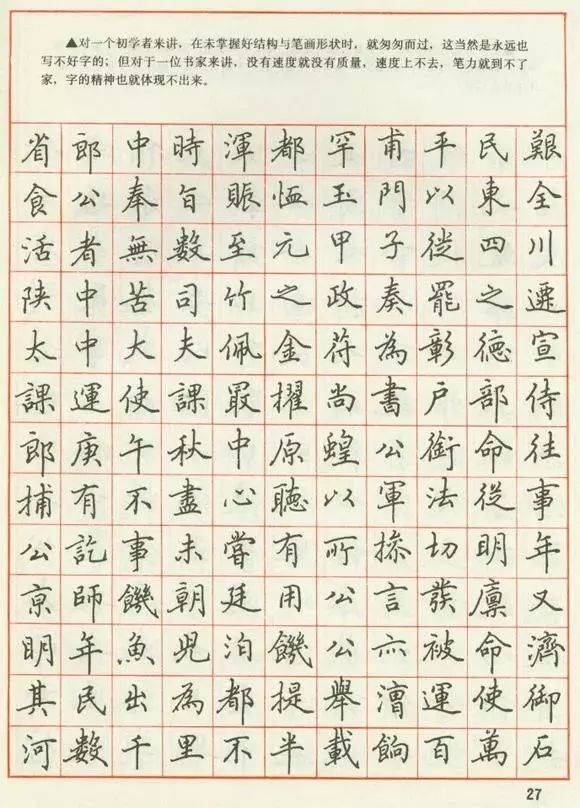 ▲对一个初学者来讲，在未掌握好结构与笔画形状时，就匆匆而过，这当然是永远也
写不好字的；但对于一位书家来讲，没有速度就没有质量，速度上不去，笔力就到不了
家，字的精神也就体现不出来。
省郎中時渾都罕甫平民艱
食公奉旨賑恤玉門以東全
活者無數至元甲子從四川
陕中苦司竹之政奏罷之遷
太中大夫佩金苻為彰德宣
課運使課最擢尚書戶部侍
郎庚午秋中原蝗公銜命往
捕有不盡心聽以軍法從事
公訖事未嘗有所摻切明年
京師饑朝廷用公言發廪又
明年魚兒泊饑公亦被命濟
其民出為都提舉漕運使御
河數千里不半載餉百萬石
27